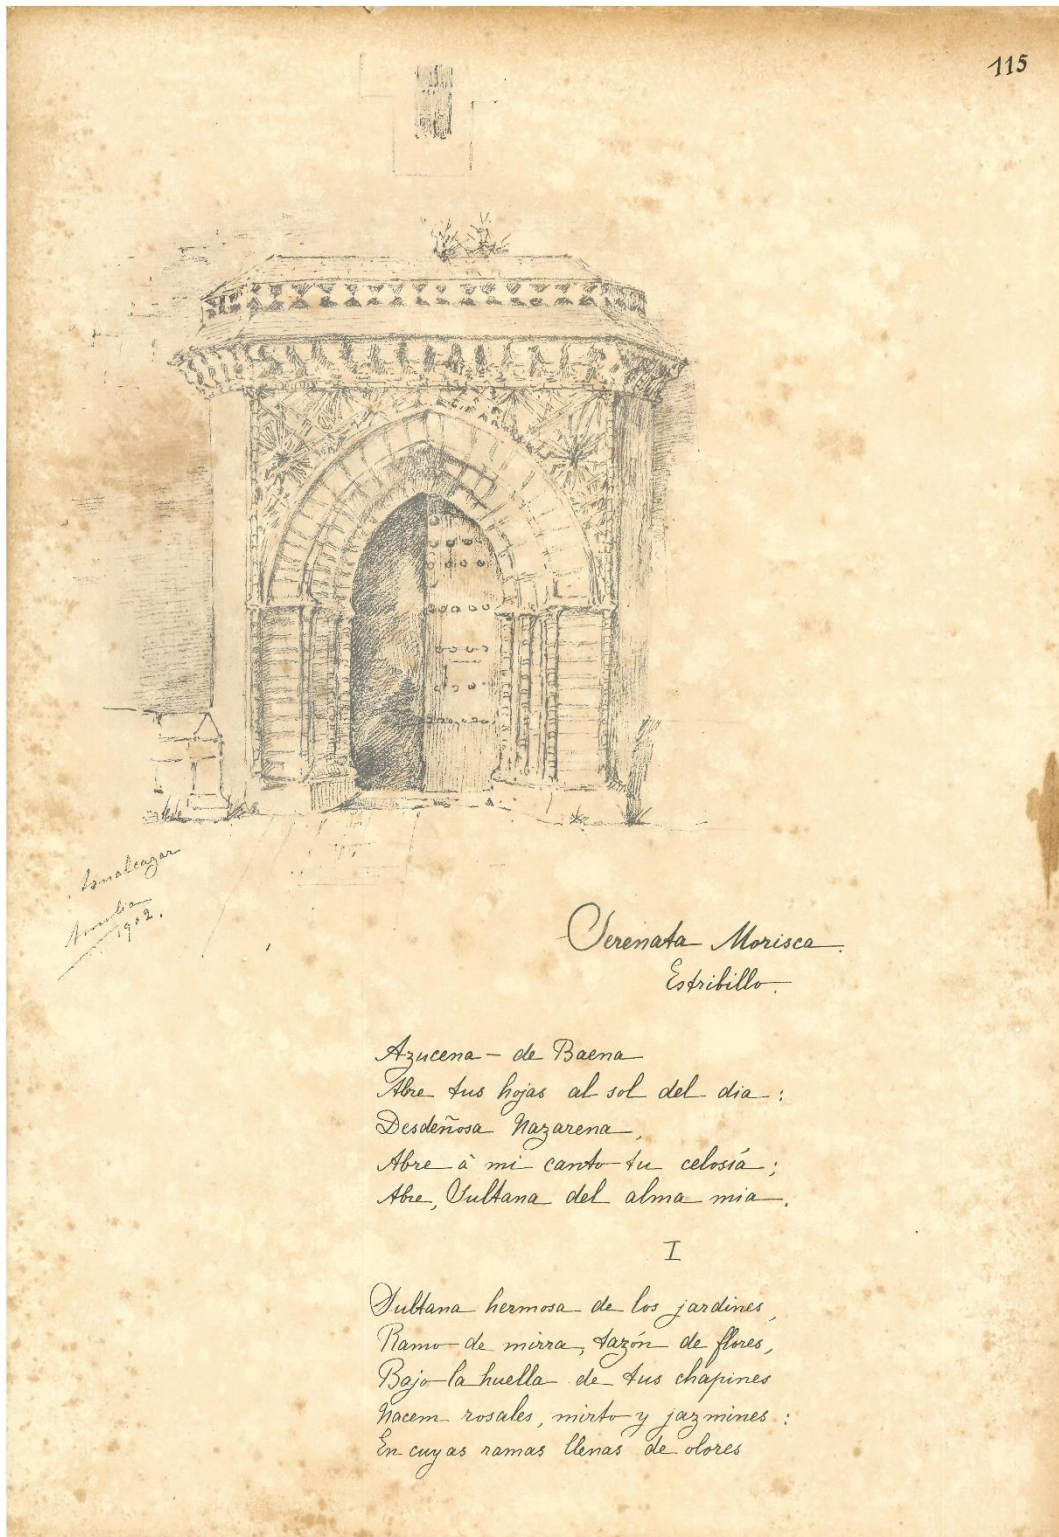 115
Sanalcazar
1902.
Serenata Morisca.
Estribillo.
Azucena - de Baena
Abre tus hojas al sol del dia:
Desdeñosa Nazarena,
Abre à mi canto tu celosía;
Abre, Sultana del alma mia.
I
Sultana hermosa de los jardines,
Ramo de mirra, tazón de flores,
Bajo la huella de tus chapines
Nacem rosales, mirto y jazmines:
En cuyas ramas llenas de olores